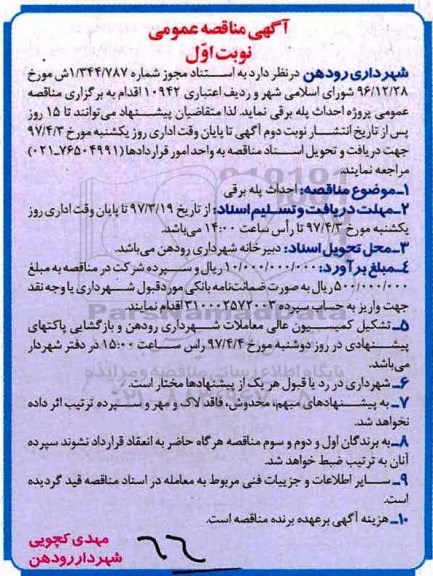 آگهی مناقصه عمومی
نوبت اوّل
شهرداری رودهن درنظر دارد به استناد مجوز شماره ۱/۳۴۴/۷۸۷ش مورخ
۹۶/۱۲/۲۸ شورای اسلامی شهر و ردیف اعتباری ۱۰۹۴۲ اقدام به برگزاری مناقصه
عمومی پروژه احداث پله برقی نماید. لذا متقاضیان پیشنهاد می‌توانند تا ۱۵ روز
پس از تاریخ انتشار نوبت دوم آگهی تا پایان وقت اداری روز یکشنبه مورخ ۹۷/۴/۳
جهت دریافت و تحویل اسناد مناقصه به واحد امور قراردادها (۷۶۵۰۴۹۹۱-۰۲۱)
مراجعه نمایند.
۱ـ موضوع مناقصه: احداث پله برقی
۲ـ مهلت دریافت و تسلیم اسناد: از تاریخ ۹۷/۳/۱۹ تا پایان وقت اداری روز
یکشنبه مورخ ۹۷/۴/۳ تا رأس ساعت ۱۴:۰۰ می‌باشد.
۳ـ محل تحویل اسناد: دبیرخانه شهرداری رودهن می‌باشد.
۴ـ مبلغ برآورد: ۱۰/۰۰۰/۰۰۰/۰۰۰ ریال و سپرده شرکت در مناقصه به مبلغ
۵۰۰/۰۰۰/۰۰۰ ریال به صورت ضمانت‌نامه بانکی موردقبول شهرداری یا وجه نقد
جهت واریز به حساب سپرده ۳۱۰۰۰۲۵۷۲۰۰۳ اقدام نمایند.
ParsNamadData
۵ـ تشکیل کمیسیون عالی معاملات شهرداری رودهن و بازگشایی پاکتهای
پیشنهادی در روز دوشنبه مورخ ۹۷/۴/۴ راس ساعت ۱۵:۰۰ در دفتر شهردار
می‌باشد.
۶ـ شهرداری در رد یا قبول هر یک از پیشنهادها مختار است.
۷ـ به پیشنهادهای مبهم، مخدوش، فاقد لاک و مهر و سپرده ترتیب اثر داده
نخواهد شد.
۸ـ به برندگان اول و دوم و سوم مناقصه هرگاه حاضر به انعقاد قرارداد نشوند سپرده
آنان به ترتیب ضبط خواهد شد.
۹ـ سایر اطلاعات و جزییات فنی مربوط به معامله در اسناد مناقصه قید گردیده
است.
۱۰ـ هزینه آگهی برعهده برنده مناقصه است.
مهدی کچویی
شهردار رودهن